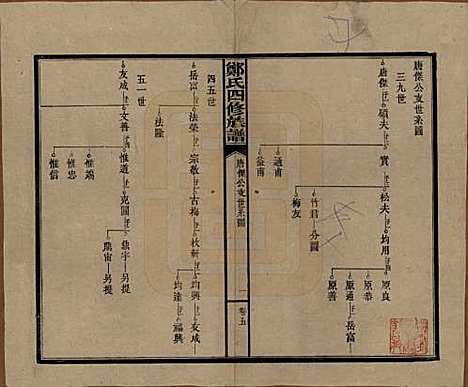 唐傑公支世系圖
三九世
唐傑
碩夫
實
松夫
均用
原良
原恭
原通
岳富
原善
竹君
分圖
梅友
通甫
益甫
鄭氏四修族譜
唐傑公支世系圖
一
卷五
四五世
岳富
法榮
宗敬
古梅
枚軒
均興
友成
均達
福興
法隆
五一世
友成
文善
惟道
克圖
鼎宇
另提
鼎宙
另提
惟鴻
惟忠
惟信